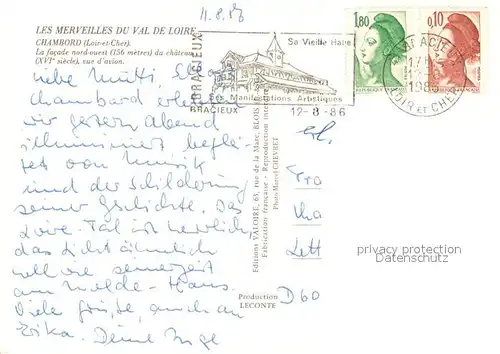 11.8.86
LES MERVEILLES DU VAL DE LOIRE
CHAMBORD (Loir-et-Cher).
La façade nord-ouest (156 mètres) du château
(XVIe siècle), vue d'avion.
BRACIEUX
Sa Vieille Halle
Ses Manifestations Artistiques
BRACIEUX
12-8-86
1,80
0,10
BRACIEUX
LOIR ET CHER
liebe Mutti,
Chambord
wir gestern Abend
illuminiert beglei-
tet von Musik
und der Schilderung
seiner Geschichte. Das
Loire-Tal ist herrlich,
das Licht ähnlich
wie seinerzeit
am Nolde-Haus.
Viele Grüße, auch an
Erika. Deine Inge
Editions VALOIRE, 65, rue de la Mare, BLOIS
Fabrication française - Reproduction interdite
Photo Marcel CHEVRET
Production
LECONTE
D60
privacy protection
DATENSCHUTZ